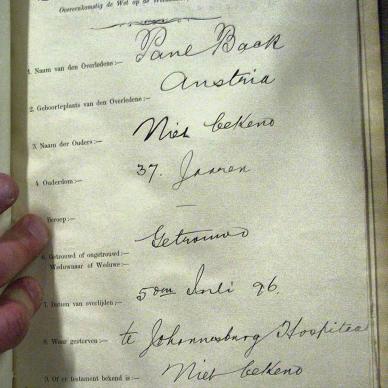 Overeenkomstig de Wet op de
Pane Back
1. Naam van den Overledene:—
Austria
2. Geboorteplaats van den Overledene:—
Niet bekend
3. Naam der Ouders:—
37. Jaaren
4. Ouderdom:—
—
Beroep:—
Getrouwd
6. Getrouwd of ongetrouwd:
Weduwnaar of Weduwe:—
5den Juli 96.
7. Datum van overlijden:—
te Johannesburg Hospitaal
8. Waar gestorven:—
Niet bekend
9. Of er testament bekend is:—